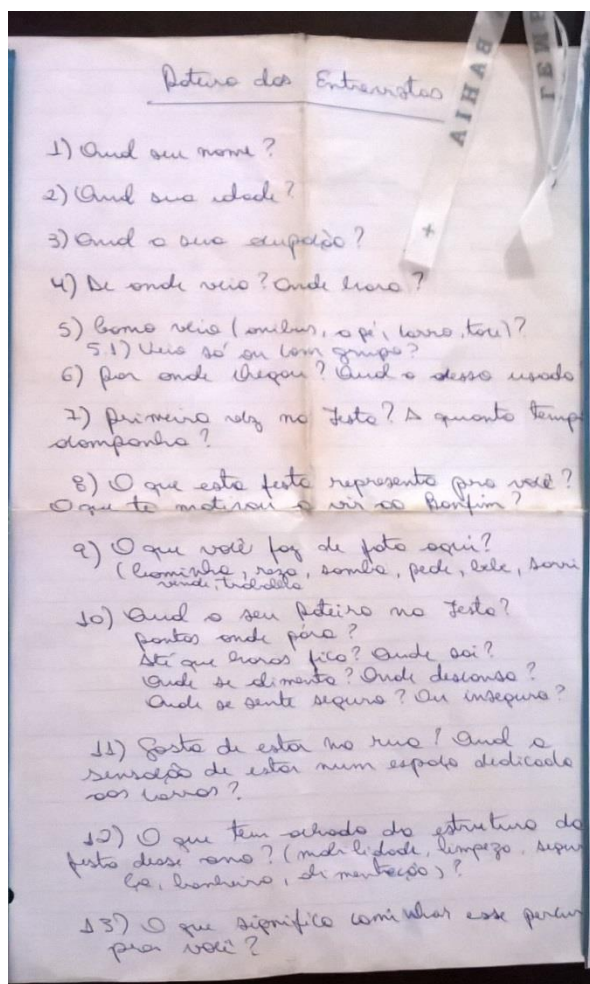 Roteiro das Entrevistas
BAHIA
LEMB
1) Qual seu nome?
2) Qual sua idade?
3) Qual a sua ocupação?
4) De onde veio? Onde mora?
5) Como veio (ônibus, a pé, carro, táxi)?
5.1) Veio só ou com grupo?
6) Por onde chegou? Qual o acesso usado
7) Primeira vez na festa? A quanto temp
acompanha?
8) O que esta festa representa pra você?
O que te motivou a vir ao Bonfim?
9) O que você faz de fato aqui?
(Caminha, reza, samba, pede, bebe, servi
vende, trabalha
10) Qual o seu Roteiro na Festa?
pontos onde pára?
Até que horas fica? Onde sai?
Onde se alimenta? Onde descansa?
Onde se sente seguro? Ou inseguro?
11) Gosta de estar na rua? Qual a
sensação de estar num espaço dedicado
aos carros?
12) O que tem achado da estrutura da
festa desse ano? (mobilidade, limpeza, segur
ça, banheiro, alimentação)?
13) O que significa caminhar esse percur
pra você?